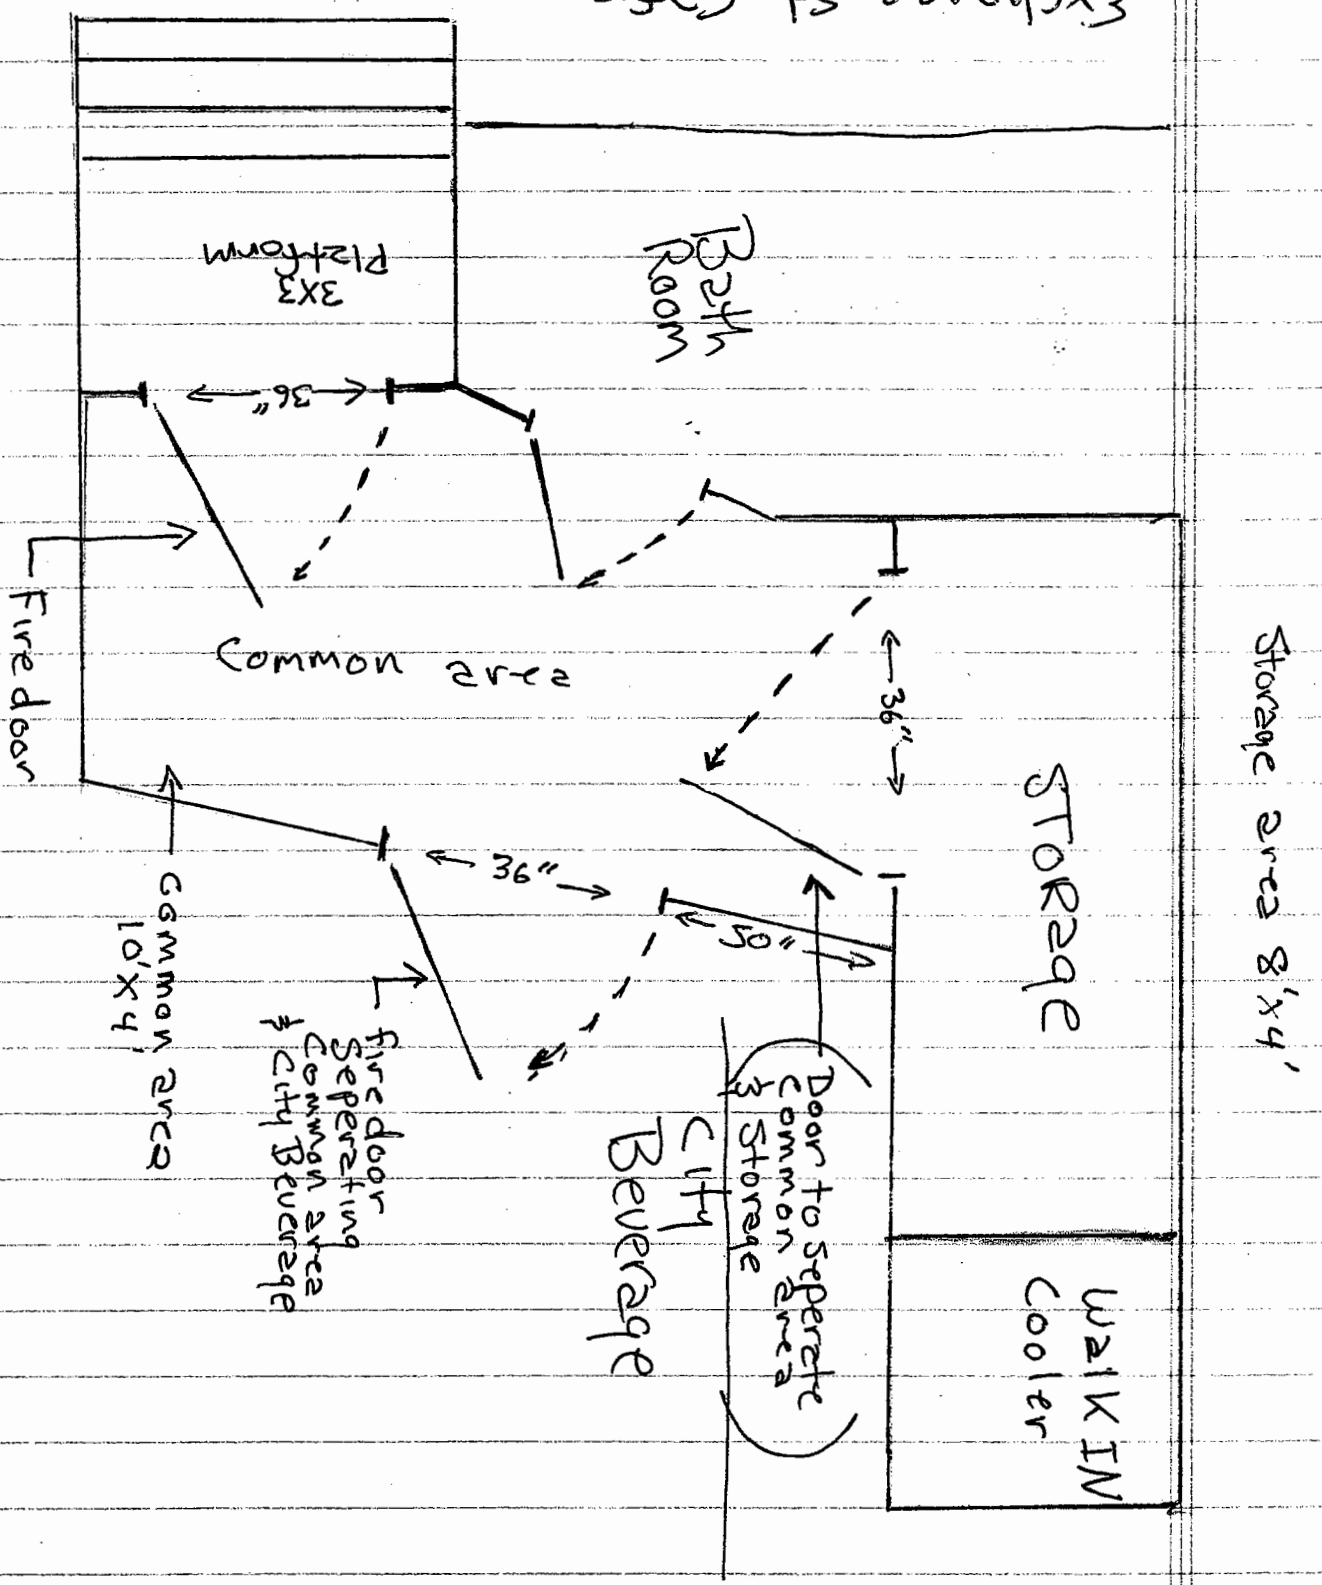 Exchange St Cafe
3X3
Platform
Bath
Room
36"
Fire door
Common area
36"
Storage area 8'X4'
STORage
36"
50"
Common area
10'X4'
fire door
Seperating
Common area
& City Beverage
Door to Seperate
Common area
& Storage
City
Beverage
Walk IN
Cooler